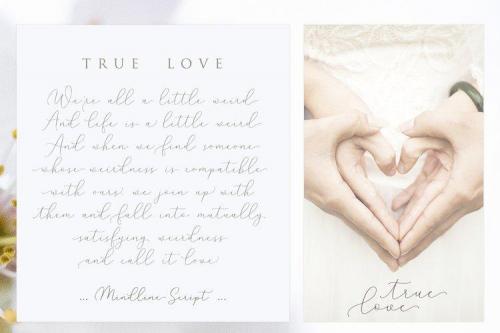 TRUE LOVE
We're all a little weird
And life is a little weird
And when we find someone
whose weirdness is compatible
with ours, we join up with
them and fall into mutually
satisfying weirdness
and call it love
... Mindline Script ...
true
love